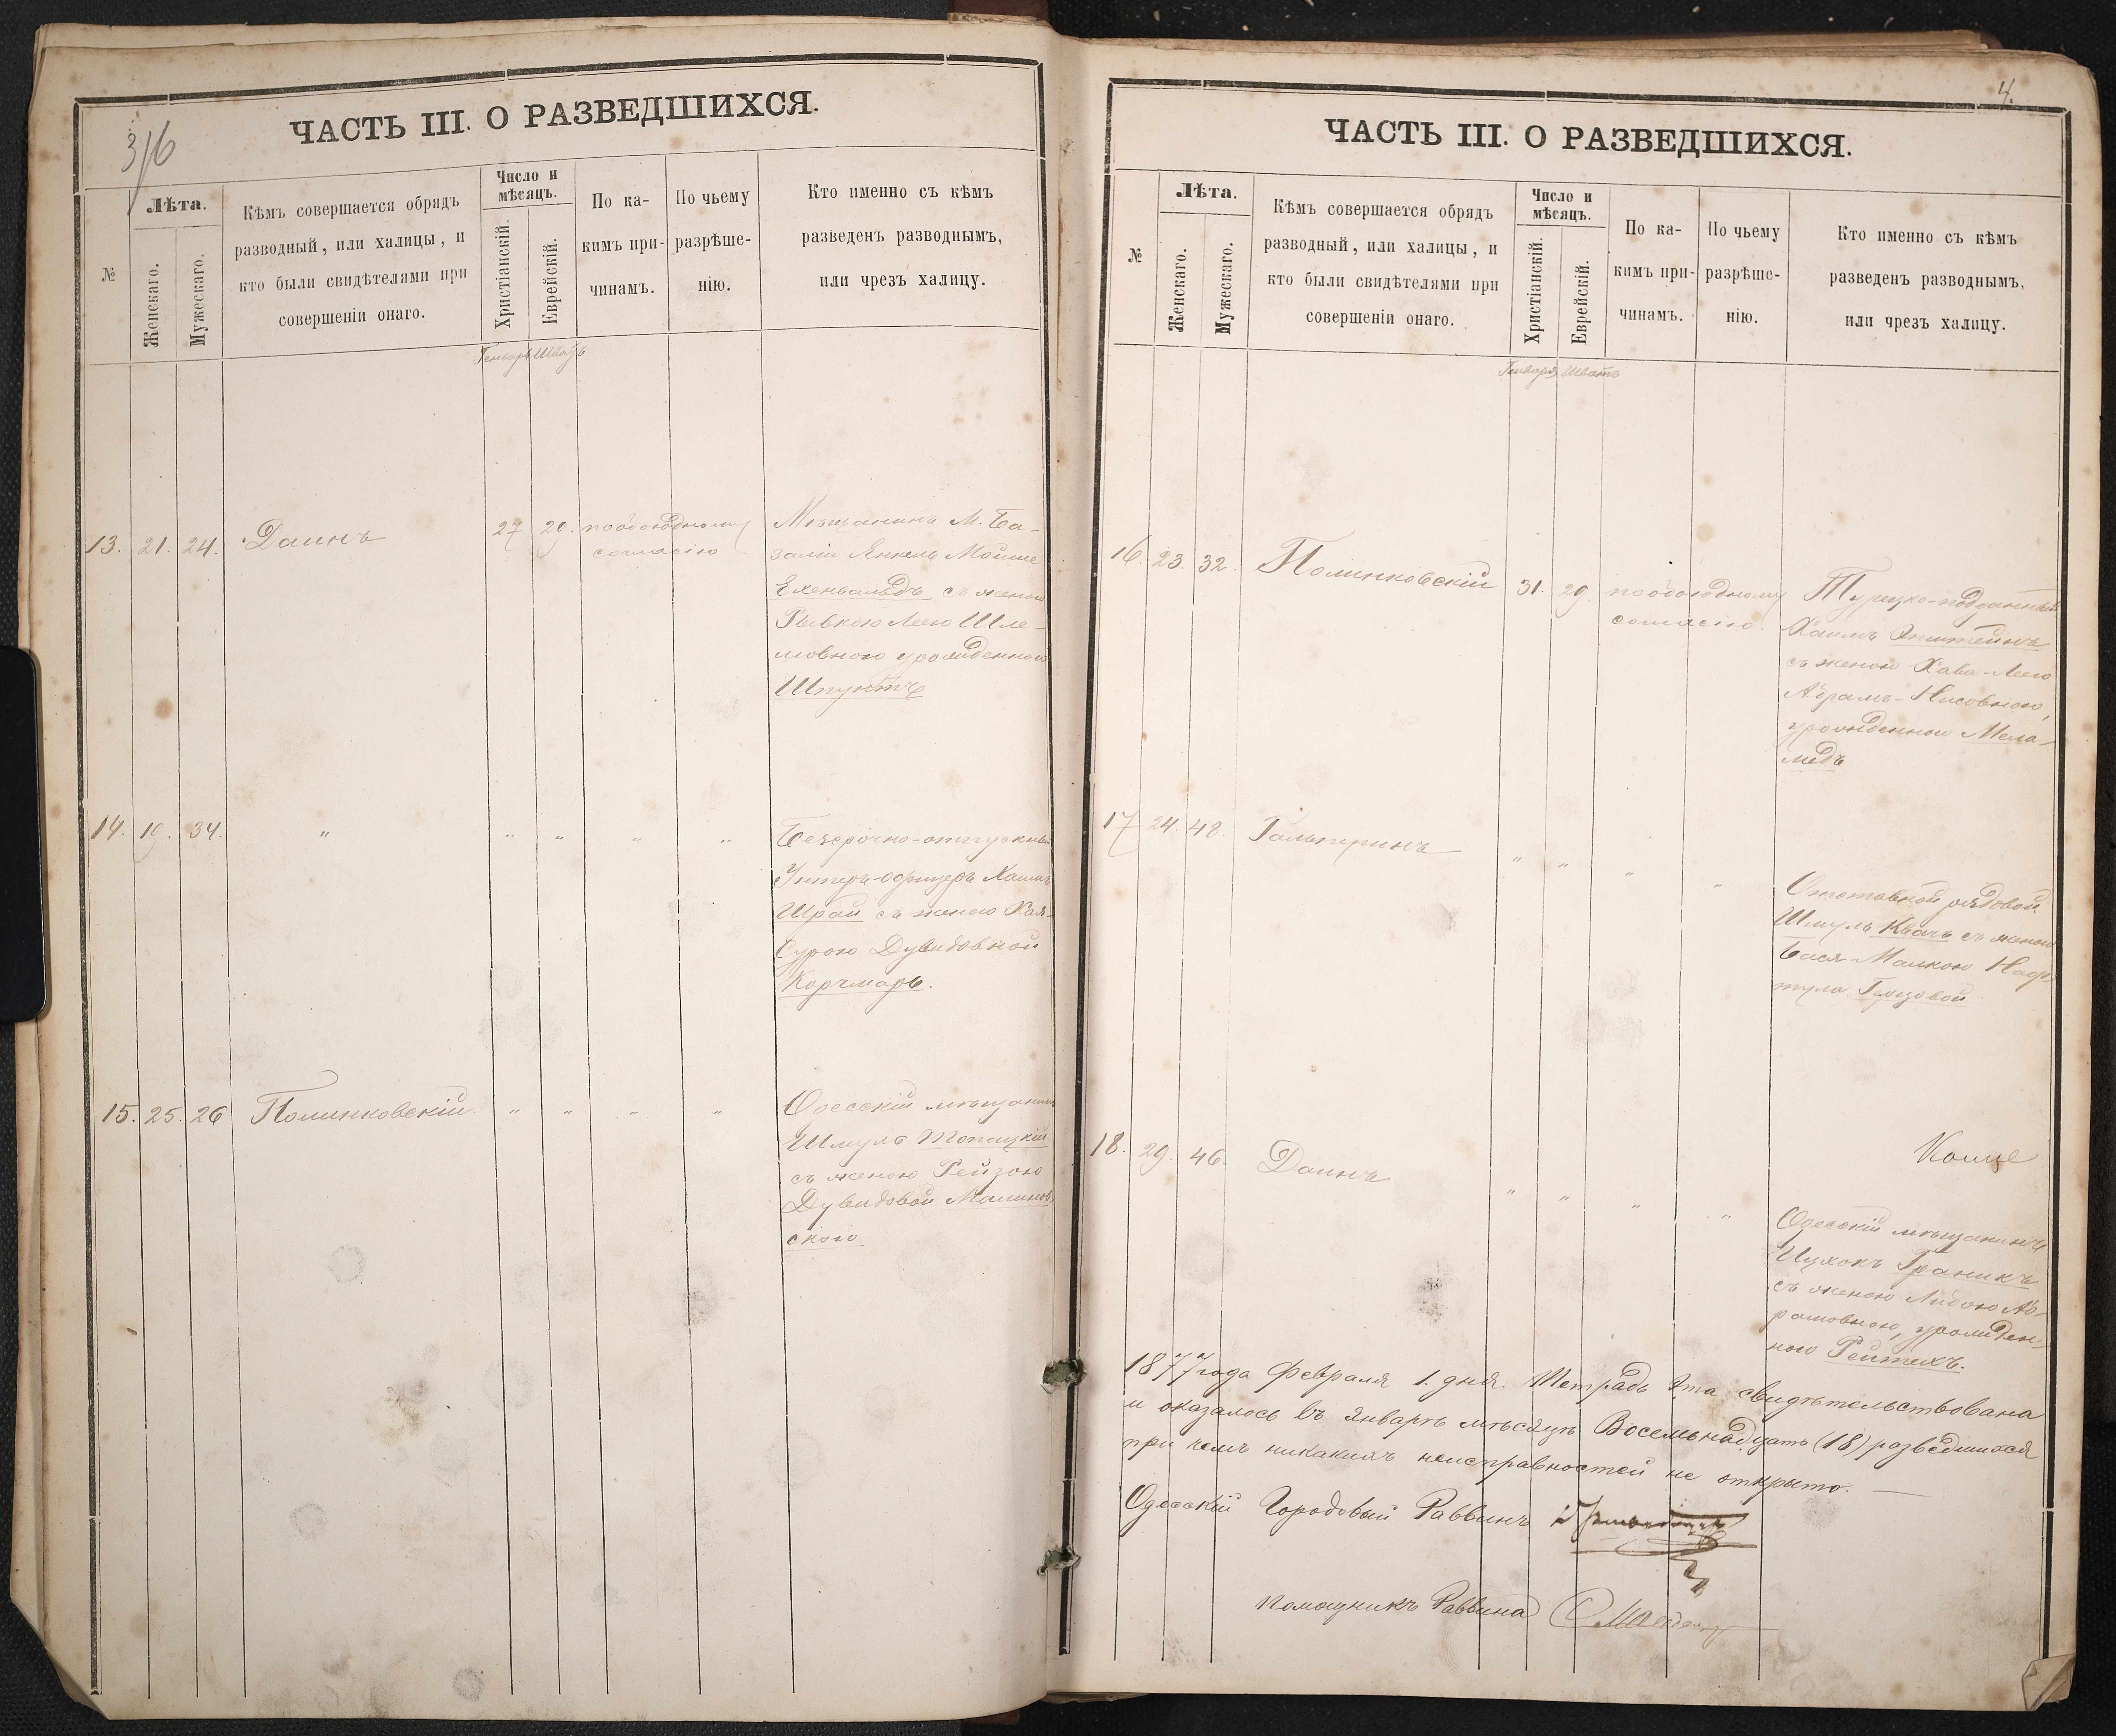 316
ЧАСТЬ III. О РАЗВЕДШИХСЯ.
№
Лѣта.
Женскаго.
Мужескаго.
Кѣмъ совершается обрядъ
разводный, или халицы, и
кто были свидѣтелями при
совершеніи онаго.
Число и
мѣсяцъ.
Христіанскій.
Еврейскій.
По ка-
кимъ при-
чинамъ.
По чьему
разрѣше-
нію.
Кто именно съ кѣмъ
разведенъ разводнымъ,
или чрезъ халицу.
Генварь Шватъ
13. 21. 24. Даинъ 27 29. по обоюдному
согласію
Мѣщанинъ М. Ба-
заліи Янкель Мойше
Ехенвальдъ съ женою
Рывкою Лею Шле-
мовною урожденною
Шпунтъ
14. 19. 34. " " " " "
Безсрочно-отпускной
Унтеръ-офицеръ Хаимъ
Шрай съ женою Хая-
Сурою Дувидовной
Корчмарь.
15. 25. 26 Полинковскій " " " "
Одесскій мѣщанинъ
Шмуль Топацкій
съ женою Рейзою
Дувидовой Малинов-
ского
4.
ЧАСТЬ III. О РАЗВЕДШИХСЯ.
№
Лѣта.
Женскаго.
Мужескаго.
Кѣмъ совершается обрядъ
разводный, или халицы, и
кто были свидѣтелями при
совершеніи онаго.
Число и
мѣсяцъ.
Христіанскій.
Еврейскій.
По ка-
кимъ при-
чинамъ.
По чьему
разрѣше-
нію.
Кто именно съ кѣмъ
разведенъ разводнымъ,
или чрезъ халицу.
Генваря Шватъ
16. 23. 32. Полинковскій 31. 29. по обоюдному
согласію.
Турецко-подданный
Хаимъ Эпштейнъ
съ женою Хава-Лею
Абрамъ-Нисовною,
урожденной Мела-
медъ
17 24. 48. Гальперинъ " " " "
Отставной рядовой
Шмуль Квачъ съ женой
Бася-Малкою Наф-
тула Герцовой
18. 29. 46. Даинъ " " " "
Одесскій мѣщанинъ
Ицхокъ Граникъ
съ женою Либою Аб-
рамовною, урожден-
ною Рейтехъ.
1877 года Февраля 1. дня. Тетрадь эта свидѣтельствована
и оказалось въ Январѣ мѣсяцѣ Восемьнадцать (18) разведшихся
при чемъ никакихъ неисправностей не открыто. —
Одесскій Городовой Раввинъ
Помощникъ Раввина